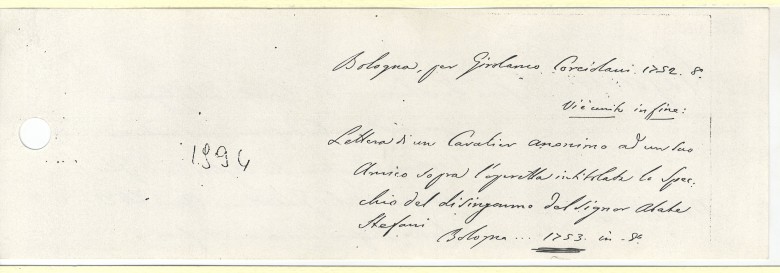 Bologna, per Girolamo Corciolani. 1752. 8º
Vi è unito in fine:
1994
Lettera di un Cavalier anonimo ad un suo
Amico sopra l'operetta intitolata lo Spec-
chio del disinganno del Signor Abate
Stefani
Bologna ... 1753. in-8º